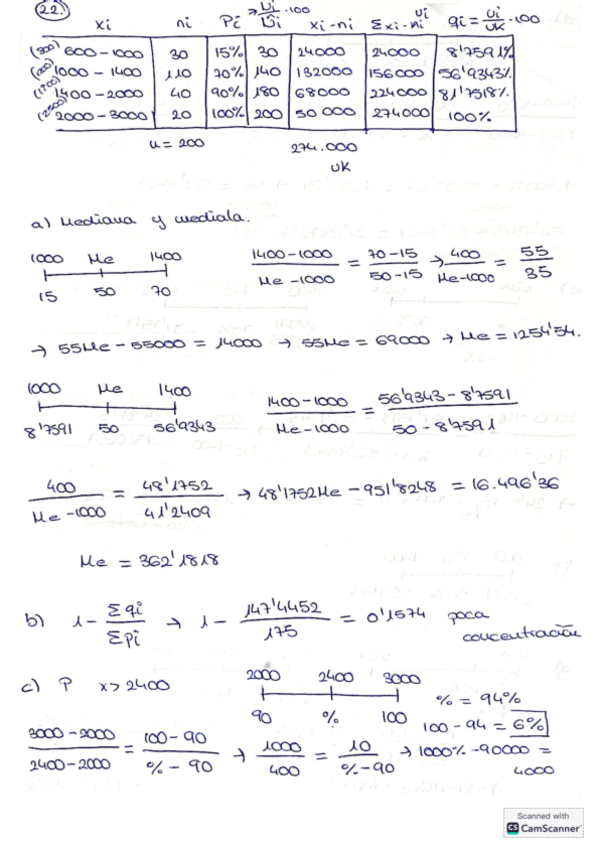 22.
xi ni Pi → Ui/Ui · 100 xi · ni Σxi · ni Ui qi = Ui/UK · 100
(800) 600 – 1000 30 15% 30 24000 24000 8'7591%
(1200) 1000 – 1400 110 70% 140 132000 156000 56'9343%
(1700) 1400 – 2000 40 90% 180 68000 224000 81'7518%
(2500) 2000 – 3000 20 100% 200 50 000 274000 100%
u = 200 274.000
UK
a) Mediana y mediala.
1000 Me 1400
15 50 70
1400-1000 / Me -1000 = 70-15 / 50-15 → 400 / Me-1000 = 55 / 35
→ 55Me – 55000 = 14000 → 55Me = 69000 → Me = 1254'54.
1000 Me 1400
8'7591 50 56'9343
1400-1000 / Me -1000 = 56'9343 – 8'7591 / 50 – 8'7591
400 / Me -1000 = 48'1752 / 41'2409 → 48'1752Me – 951'8248 = 16.496'36
Me = 362'1818
b) 1 - Σqi / Σpi → 1 - 147'4452 / 175 = 0'1574 poca
concentración
c) P x > 2400
2000 2400 3000
90 % 100
% = 94%
100 - 94 = 6%
3000 - 2000 / 2400 - 2000 = 100 - 90 / % - 90 → 1000 / 400 = 10 / % - 90 → 1000% - 90000 =
4000
Scanned with
CS CamScanner